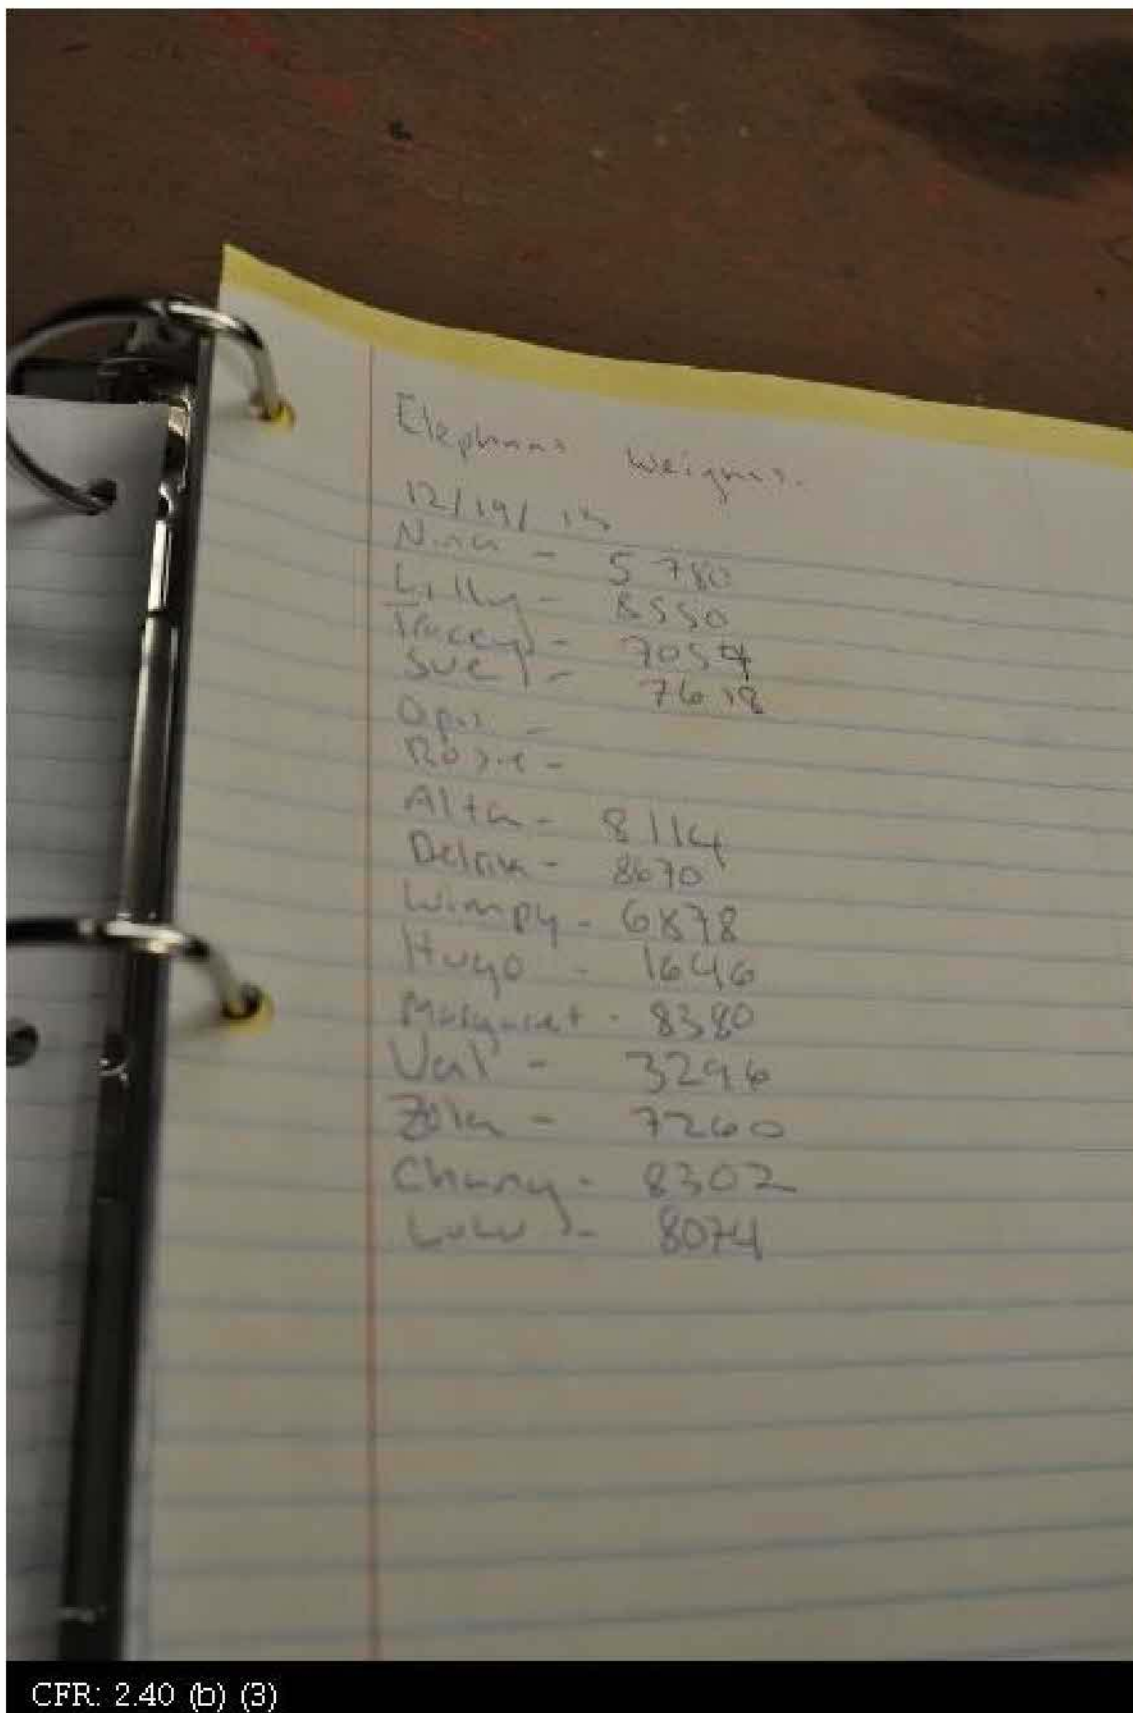 Elephant Weights.
12/19/13
Nina - 5780
Lilly - 8550
Traccy - 7054
Sue - 7618
Opal -
Rosie -
Alta - 8114
Delhia - 8670
Wimpy - 6878
Hugo - 1646
Margaret - 8380
Val - 3296
Zola - 7260
Chang - 8302
Lulu - 8074
CFR: 2.40 (b) (3)